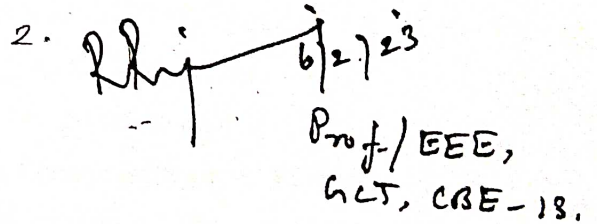 2.
6/2/23
Prof/EEE,
GCT, CBE-13.